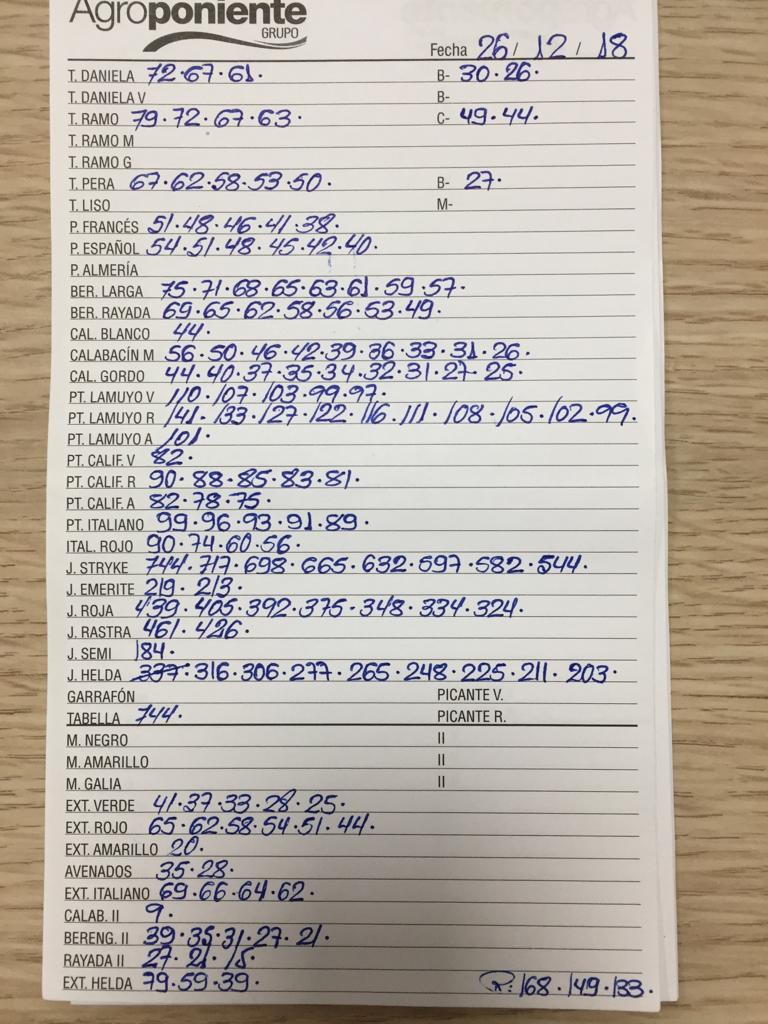 Agroponiente
GRUPO
Fecha 26/ 12 / 18
T. DANIELA 72·67·61· B- 30·26·
T. DANIELA V B-
T. RAMO 79·72·67·63· C- 49·44·
T. RAMO M
T. RAMO G
T. PERA 67·62·58·53·50· B- 27·
T. LISO M-
P. FRANCÉS 51·48·46·41·38·
P. ESPAÑOL 54·51·48·45·42·40·
P. ALMERÍA
BER. LARGA 75·71·68·65·63·61·59·57·
BER. RAYADA 69·65·62·58·56·53·49·
CAL. BLANCO 44·
CALABACÍN M 56·50·46·42·39·36·33·31·26·
CAL. GORDO 44·40·37·35·34·32·31·27·25·
PT. LAMUYO V 110·107·103·99·97·
PT. LAMUYO R 141·133·127·122·116·111·108·105·102·99·
PT. LAMUYO A 101·
PT. CALIF. V 82·
PT. CALIF. R 90·88·85·83·81·
PT. CALIF. A 82·78·75·
PT. ITALIANO 99·96·93·91·89·
ITAL. ROJO 90·74·60·56·
J. STRYKE 744·717·698·665·632·597·582·544·
J. EMERITE 219·213·
J. ROJA 439·405·392·375·348·334·324·
J. RASTRA 461·426·
J. SEMI 184·
J. HELDA 337·316·306·277·265·248·225·211·203·
GARRAFÓN PICANTE V.
TABELLA 744· PICANTE R.
M. NEGRO II
M. AMARILLO II
M. GALIA II
EXT. VERDE 41·37·33·28·25·
EXT. ROJO 65·62·58·54·51·44·
EXT. AMARILLO 20·
AVENADOS 35·28·
EXT. ITALIANO 69·66·64·62·
CALAB. II 9·
BERENG. II 39·35·31·27·21·
RAYADA II 27·21·15·
EXT. HELDA 79·59·39· R: 168·149·133·